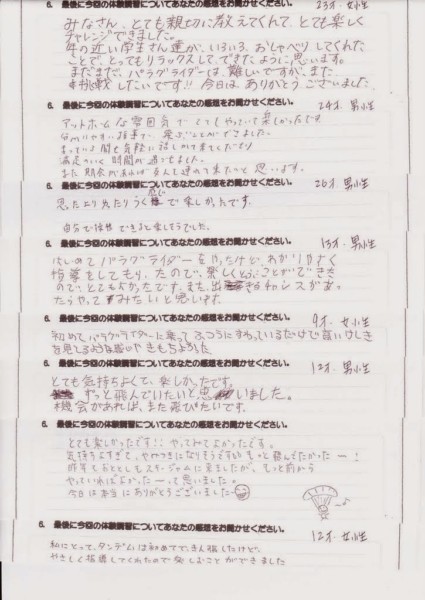 6. 最後に今回の体験講習についてあなたの感想をお聞かせください。 23才. 女性
みなさん、とても親切に教えてくれて、とても楽しく
チャレンジできました。
年の近い学生さん達が、いろいろ、おしゃべりしてくれた
ことで、とってもリラックスして、できたように思います。
まだまだ、パラグライダーは、難しいですが、また
挑戦したいです!! 今日は、ありがとうございました
6. 最後に今回の体験講習についてあなたの感想をお聞かせください。 24才 男性
アットホームな雰囲気でとてもやっていて楽しかったです
分かりやすい指導で、楽しぶことができました。
まっている間も気軽に話しかけて来てくださり
満足のいく時間が過ごせました。
また機会があれば友人も連れて来たいと思います。
6. 最後に今回の体験講習についてあなたの感想をお聞かせください。 26才 男性
思ったよりふわりうく感じで楽しかったです。
自分で操作できると楽しそうでした。
6. 最後に今回の体験講習についてあなたの感想をお聞かせください。 13才. 男性
はじめてパラグライダーをやったけど、わかりやすく
指導をしてもらったので、楽しくとぶことができた
ので、とてもよかったです。また、出きるチャンスがあっ
たらやってみたいと思います。
6. 最後に今回の体験講習についてあなたの感想をお聞かせください。 9才. 女性
初めてパラグライダーに乗って ふつうにすわっているだけで高いけしき
を見てるような感じできもちよかった
6. 最後に今回の体験講習についてあなたの感想をお聞かせください。 12才 男性
とても気持ちよくて、楽しかったです。
ずっと飛んでいたいと思いました。
機会があれば、また飛びたいです。
6. 最後に今回の体験講習についてあなたの感想をお聞かせください。
とても楽しかったです!! やってみてよかったです。
気持ちよすぎて、やみつきになりそうですね もっと飛んでたかったー!
昨年もおととしもスタ・ジャムに来ましたが、もっと前から
やっていればよかったーって思いました。
今日は本当にありがとうございました
6. 最後に今回の体験講習についてあなたの感想をお聞かせください。 12才. 女性
私にとって、タンデムは初めてで、きん張したけど、
やさしく指導してくれたので楽しむことができました